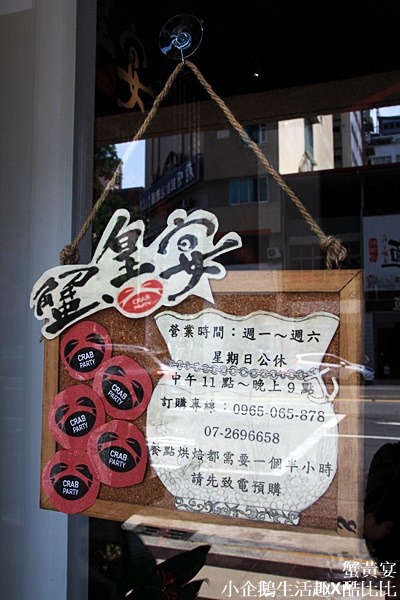 蟹皇宴
CRAB PARTY
CRAB
PARTY
CRAB
PARTY
CRAB
PARTY
CRAB
PARTY
CRAB
PARTY
營業時間：週一～週六
星期日公休
中午11點～晚上9點
訂購專線：0965-065-878
07-2696658
餐點烘焙都需要一個半小時
請先致電預購
蟹黃宴
小企鵝生活趣X酷比比